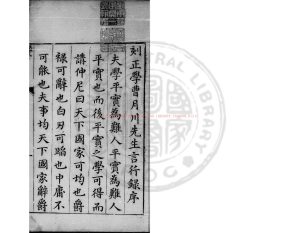 刻正學曹月川先生言行錄序
夫學平實為難人平實為難人
平實也而後平實之學可得而
講仲尼曰天下國家可均也爵
祿可辭也白刃可蹈也中庸不
可能也夫事均天下國家辭爵